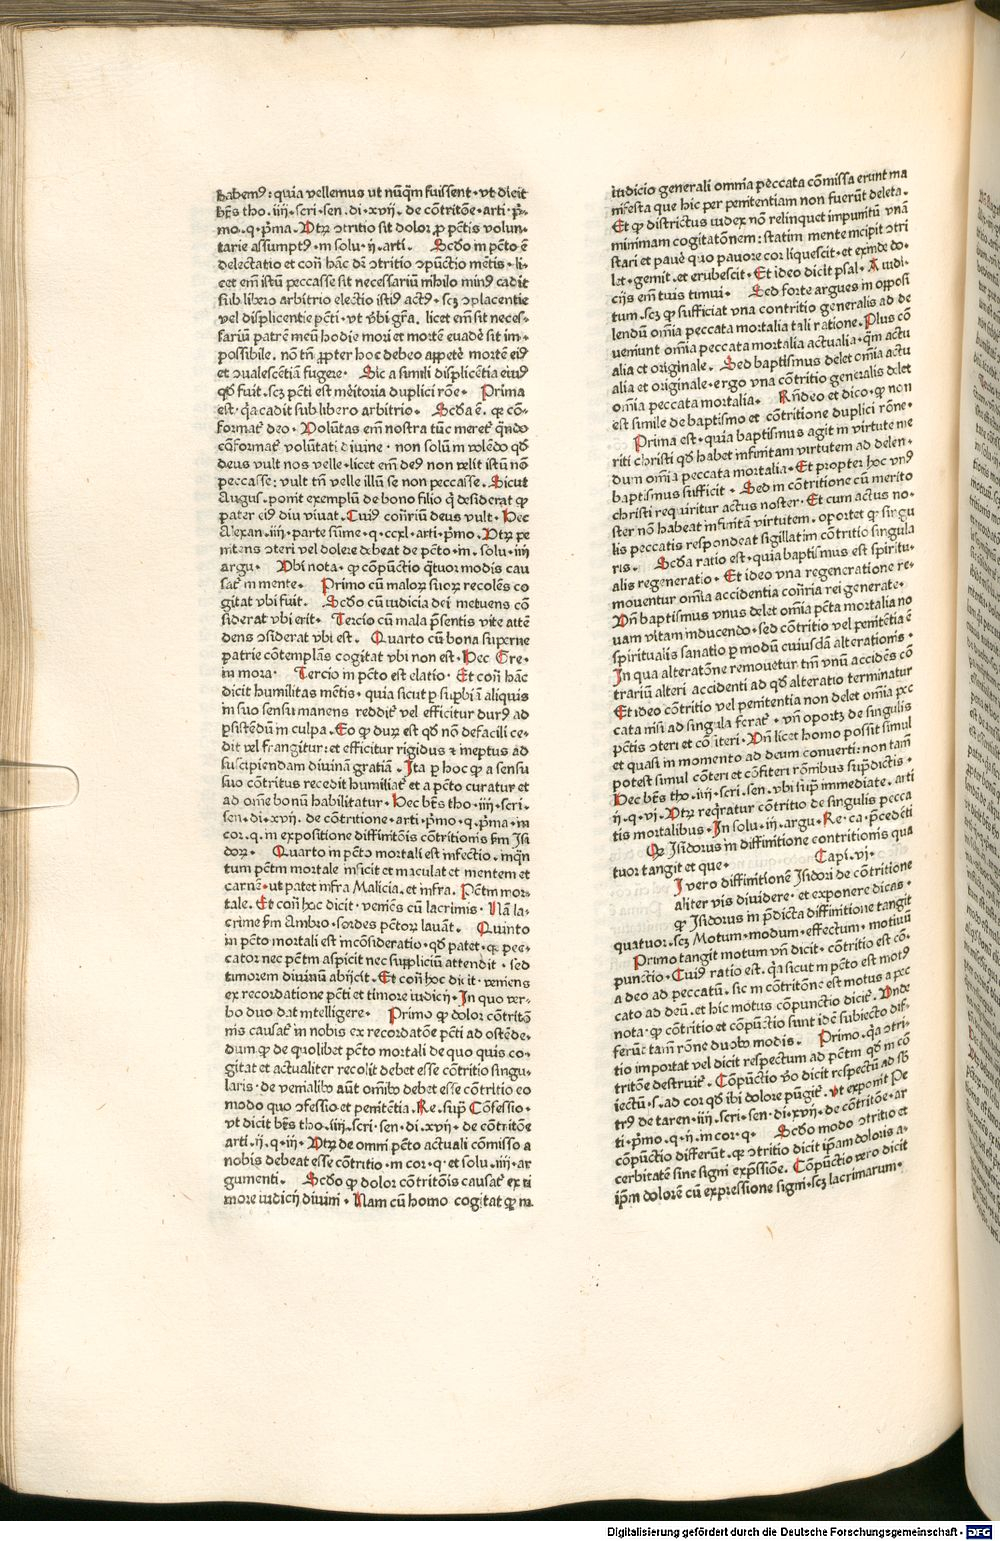 habemꝰ : quia vellemus ut nūq̄m fuissent · vt dicit
bt̄s tho · iiij · scri · sen · di · xvij · de cōtritōe · arti · p̄-
mo · q · p̄ma · Vtꝝ ↄtritio sit dolor ꝓ pctīs volun-
tarie assumptꝰ · in solu · ij · arti · Scdō in pctō ē
delectatio et con̄ hāc dr̄ ↄtritio ↄpūctio mētis · li-
cet em̄ istū peccasse sit necessariū nihilo minꝰ cadit
sub libero arbitrio electio istiꝰ actꝰ · scꝫ ↄplacentie
vel displicentie pcti · vt vbi gr̄a · licet em̄ sit neces-
sariū patrē meū hodie mori et mortē euadē sit im-
possibile · nō tn̄ ꝓpter hoc debeo appetē mortē eiꝰ
et ↄualescētiā fugere · Sic a simili displicētia eiuꝰ
qd̄ fuit · scꝫ pcti est meritoria duplici rōe · Prima
est · q̄a cadit sub libero arbitrio · Scdā ē · qꝛ cō-
format̄ deo · Volūtas em̄ nostra tūc meret̄ q̄ndo
cōformat̄ volūtati diuine · non solū in volēdo qd̄
deus vult nos velle · licet em̄ deꝰ non velit istū nō
peccasse : vult tn̄ velle illū se non peccasse · Sicut
Augus · ponit exemplū de bono filio q̄ desiderat ꝙ
pater eiꝰ diu viuat · Cuiꝰ con̄riū deus vult · Hec
Alexan · iiij · parte sūme · q · ccxl · arti · p̄mo · Vtꝝ pe
nitens ↄteri vel dolere debeat de pctō · in · solu · iiij
argu · Vbi nota · ꝙ cōpūctio q̄tuor modis cau
sat̄ in mente · Primo cū maloꝝ suoꝝ recolēs co
gitat vbi fuit · Scdō cū iudicia dei metuens cō
siderat vbi erit · Tercio cū mala p̄sentis vite attē
dens ↄsiderat vbi est · Quarto cū bona superne
patrie cōtemplās cogitat vbi non est · Hec Gre ·
in mora · Tercio in pctō est elatio · Et con̄ hāc
dicit humilitas mētis · quia sicut p suꝑbiā aliquis
in suo sensu manens reddit̄ vel efficitur durꝰ ad
ꝑsistēdū in culpa · Eo ꝙ duꝝ est qd̄ nō defacili ce-
dit vel frangitur : et efficitur rigidus ⁊ ineptus ad
suscipiendam diuinā gratiā · Ita p hoc ꝙ a sensu
suo cōtritus recedit humiliat̄ et a pctō curatur et
ad oīne bonū habilitatur · Hec bt̄s tho · iiij · scri ·
sen · di · xvij · de cōtritione · arti · p̄mo · q · p̄ma · in
cor · q · in expositione diffinitōis cōtritionis fm̄ Isi
doꝝ · Quarto in pctō mortali est infectio · inq̄n
tum pctm̄ mortale inficit et maculat et mentem et
carnē · ut patet infra Malicia · et infra · Pctm̄ mor-
tale · Et con̄ hoc dicit · veniēs cū lacrimis · Nā la-
crime fm̄ Ambro · sordes pctōꝝ lauāt · Quinto
in pctō mortali est incōsideratio · qd̄ patet · qꝛ pec-
cator nec pctm̄ aspicit nec suppliciū attendit · sed
timorem diuinū abijcit · Et con̄ hoc dicit · veniens
ex recordatione pcti et timore iudicij · In quo ver-
bo duo dat intelligere · Primo ꝙ dolor cōtritō
nis causat̄ in nobis ex recordatōe pcti ad ostēde-
dum ꝙ de quolibet pctō mortali de quo quis co-
gitat et actualiter recolit debet esse cōtritio singu-
laris · de venialibꝰ aūt om̄ibꝰ debet esse cōtritio eo
modo quo ↄfessio et penitētia · Re · sup̄ Cōfessio ·
vt dicit bt̄s tho · iiij · scri · sen · di · xvij · de cōtritōe
arti · ij · q · iij · Vtꝝ de omni pctō actuali cōmisso a
nobis debeat esse cōtritio · in cor · q · et solu · iiij · ar
gumenti · Scdō ꝙ dolor cōtritōis causat̄ ex ti
more iudicij diuini · Nam cū homo cogitat ꝙ in
iudicio generali omnia peccata cōmissa erunt ma
nifesta que hic per penitentiam non fuerūt deleta ·
Et ꝙ districtus iudex nō relinquet impunitū vnā
minimam cogitatōnem : statim mente incipit ↄtri
stari et pauē quo pauore cor liquescit · et exinde do-
let · gemit · et erubescit · Et ideo dicit psal · A iudi-
cijs em̄ tuis timui · Sed forte argues in opposi
tum · scꝫ ꝙ sufficiat vna contritio generalis ad de
lendū om̄ia peccata mortalia tali ratione · Plus cō
ueniunt om̄ia peccata mortalia actualia · q̄m actu
alia et originale · Sed baptismus delet om̄ia actu
alia et originale · ergo vna cōtritio generalis delet
om̄ia peccata mortalia · Rn̄deo et dico · ꝙ non
est simile de baptismo et cōtritione duplici rōne ·
Prima est · quia baptismus agit in virtute me
riti christi qd̄ habet infinitam virtutem ad delen-
dum om̄ia peccata mortalia · Et propter hoc vnꝰ
baptismus sufficit · Sed in cōtritione cū merito
christi requiritur actus noster · Et cum actus no-
ster nō habeat infinitā virtutem · oportet ꝙ singu
lis peccatis respondeat sigillatim cōtritio singula
ris · Scdā ratio est · quia baptismus est spiritu-
alis regeneratio · Et ideo vna regeneratione re-
mouentur om̄ia accidentia con̄ria rei generate ·
Vn̄ baptismus vnus delet om̄ia pctā mortalia no
uam vitam inducendo · sed cōtritio vel penitētia ē
spiritualis sanatio p modū cuiusdā alterationis ·
In qua alteratōne remouetur tm̄ vnū accidēs cō
trariū alteri accidenti ad qd̄ alteratio terminatur
Et ideo cōtritio vel penitentia non delet om̄ia pec
cata nisi ad singula ferat̄ · vn̄ oportꝫ de singulis
pctīs ↄteri et cōfiteri · Vn̄ licet homo possit simul
et quasi in momento ad deum conuerti : non tam̄
potest simul cōteri et cōfiteri rōnibus sup̄dictis ·
Hec bt̄s tho · iiij · scri · sen · vbi sup̄ immediate · arti
ij · q · vi · Vtꝝ req̄ratur cōtritio de singulis pecca
tis mortalibus · In solu · iij · argu · Re · ca · p̄cedēti
Qꝛ Isidorus in diffinitione contritionis qua
tuor tangit et que · Capi · vi ·
I vero diffinitionē Isidori de cōtritione
aliter vis diuidere · et exponere dicas ·
ꝙ Isidorus in p̄dicta diffinitione tangit
quatuor · scꝫ Motum · modum · effectum · motiuū
Primo tangit motum vn̄ dicit · cōtritio est cō-
punctio · Cuiꝰ ratio est · q̄a sicut in pctō est motꝰ
a deo ad peccatū · sic in cōtritōne est motus a pec
cato ad deū · et hic motus cōpunctio dicit̄ · Vnde
nota · ꝙ cōtritio et cōpūctio sunt idē subiecto dif-
ferūt tam̄ rōne duobꝰ modis · Primo · q̄a ↄtri-
tio importat vel dicit respectum ad pctm̄ qd̄ in cō
tritōe destruit̄ · Cōpūctio v̄o dicit respectū ad sb̄
iectū · s · ad cor qd̄ ibi dolore pūgit̄ · vt exponit Pe
trꝰ de taren · iiij · scri · sen · di · xvij · de cōtritōe · ar
ti · p̄mo · q · ij · in cor · q · Scdō modo ↄtritio et
cōpūctio differūt · qꝛ ↄtritio dicit ip̄am doloris a-
cerbitatē sine signi exp̄ssiōe · Cōpūctio vero dicit
ip̄m dolorē cū expressione signi · scꝫ lacrimarum ·
Digitalisierung gefördert durch die Deutsche Forschungsgemeinschaft - DFG